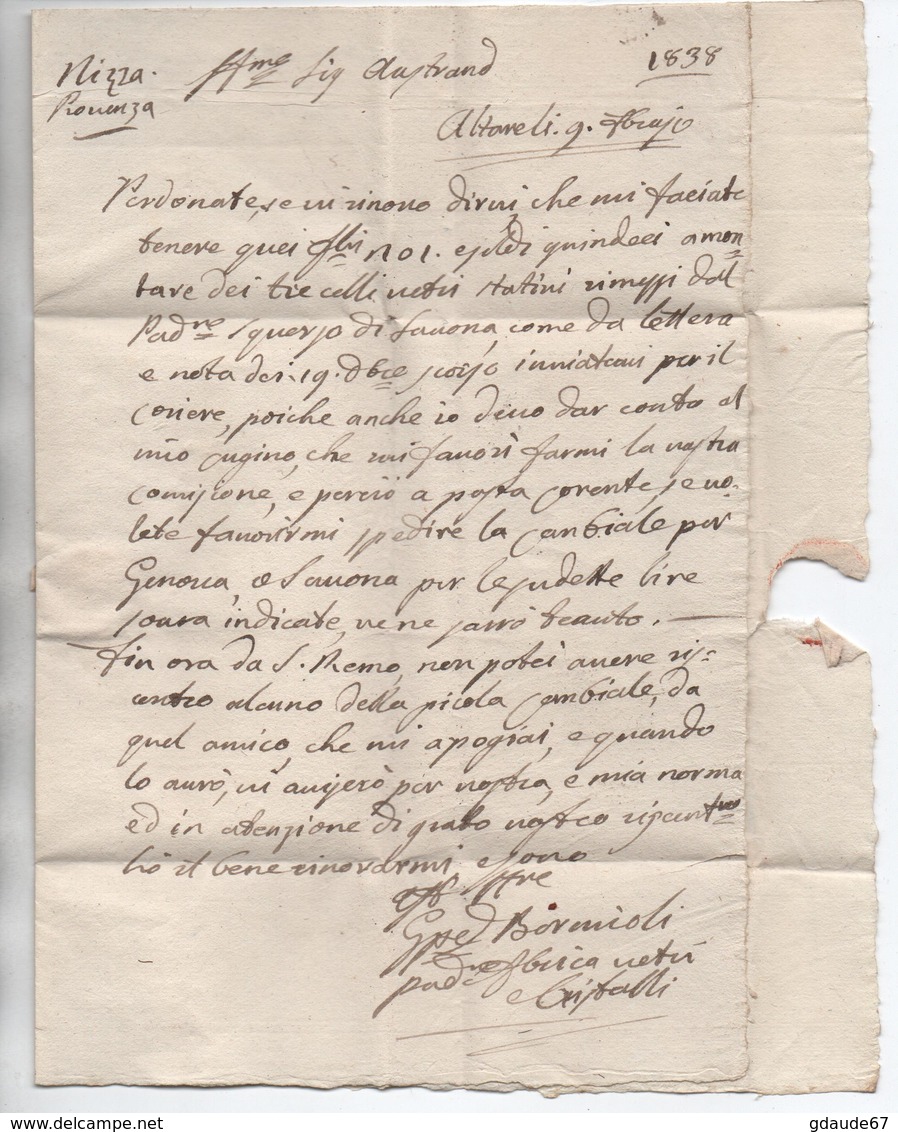 Nizza. Ill.me Sig Austrand 1838
Provenza
Altareli. 9. Gbrajo
Perdonate, se vi rinovo dirvi che mi faciate
tenere quei 101. e soldi quindeci amon
tare dei tre colli vetri stativi rimessi dal
Pad.ne Squerso di Savona, come da lettera
e nota dei 19. Xbre scorso inviatavi per il
coriere, poiche anche io devo dar conto al
mio cugino, che mi favorì farmi la vostra
comisione, e perciò a posta corente, se vo-
lete favorirmi spedire la canbiale per
Genova, o Savona per le sudette lire
sovra indicate, ve ne sarrò tenuto.
Fin ora da S. Remo, non potei avere ris=
contro alcuno della picola canbiale, da
quel amico, che mi apogiai, e quando
lo avrò, vi aviserò per vostra, e mia norma
ed in atenzione di grato vostro
hò il bene rinovarmi, e sono
Bormioli
pad.ne fbrica vetri
e Cristalli
gdaude67